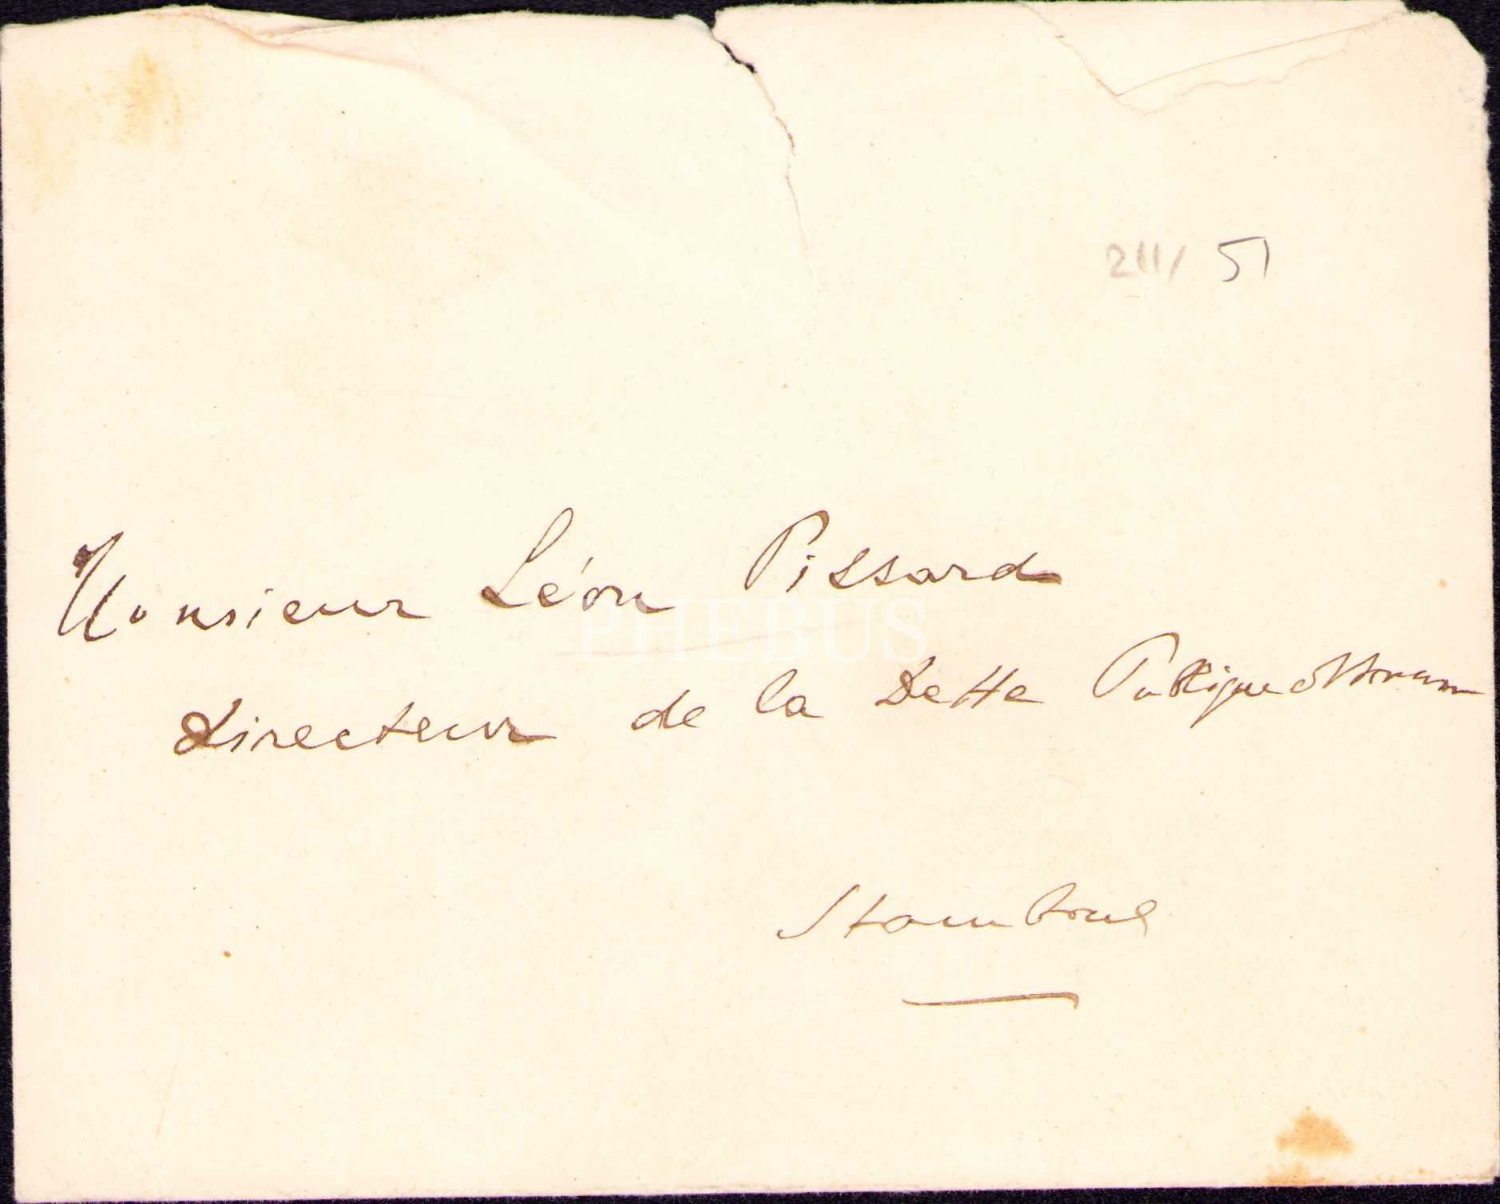 211/ 51
Monsieur Léon Pissard
Directeur de la Dette Publique Ottomane
Stamboul
PHEBUS